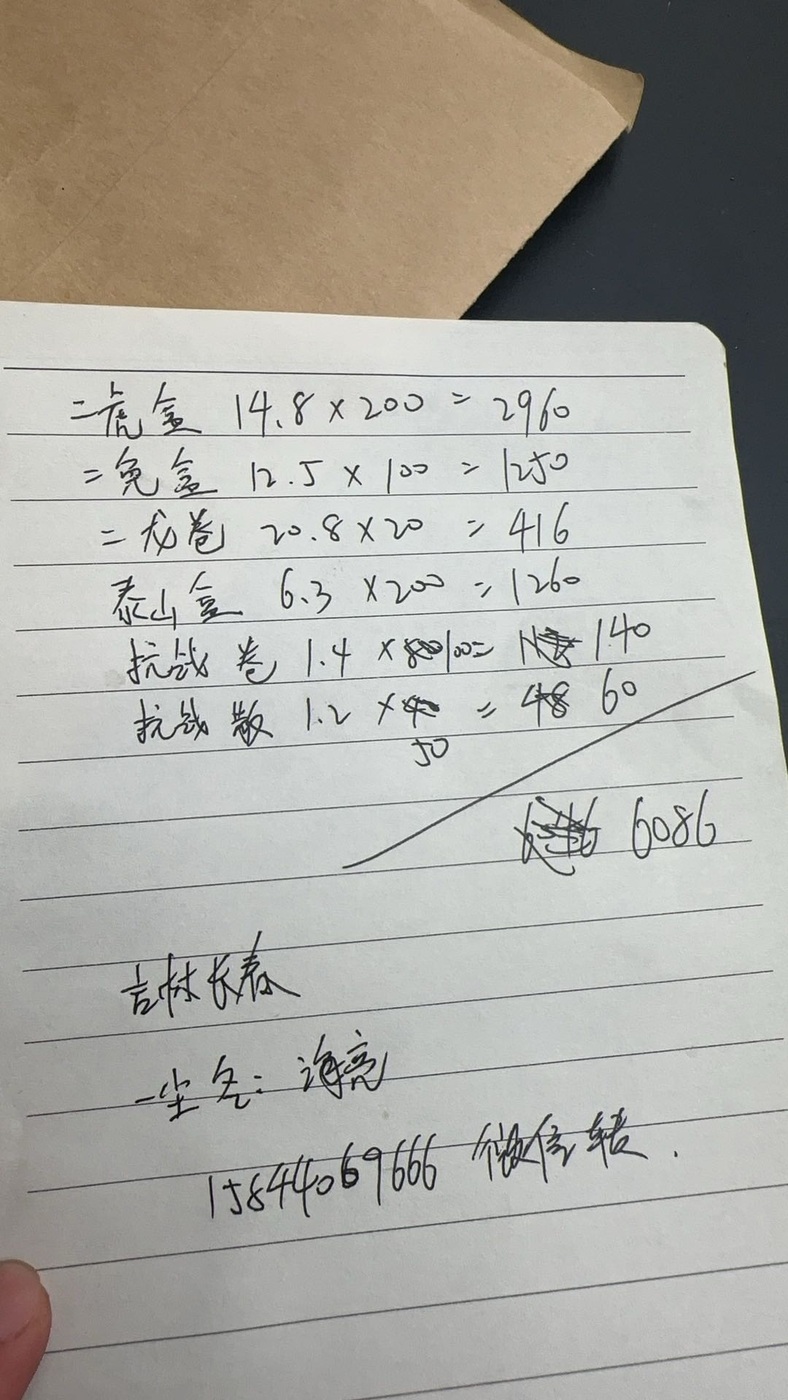 二虎盒 14.8×200 = 2960
二兔盒 12.5×100 = 1250
二龙卷 20.8×20 = 416
泰山盒 6.3×200 = 1260
抗战卷 1.4×100 = 140
抗战散 1.2× = 60
50
6086
吉林长春
一尘名: 海亮
15844069666 微信转.